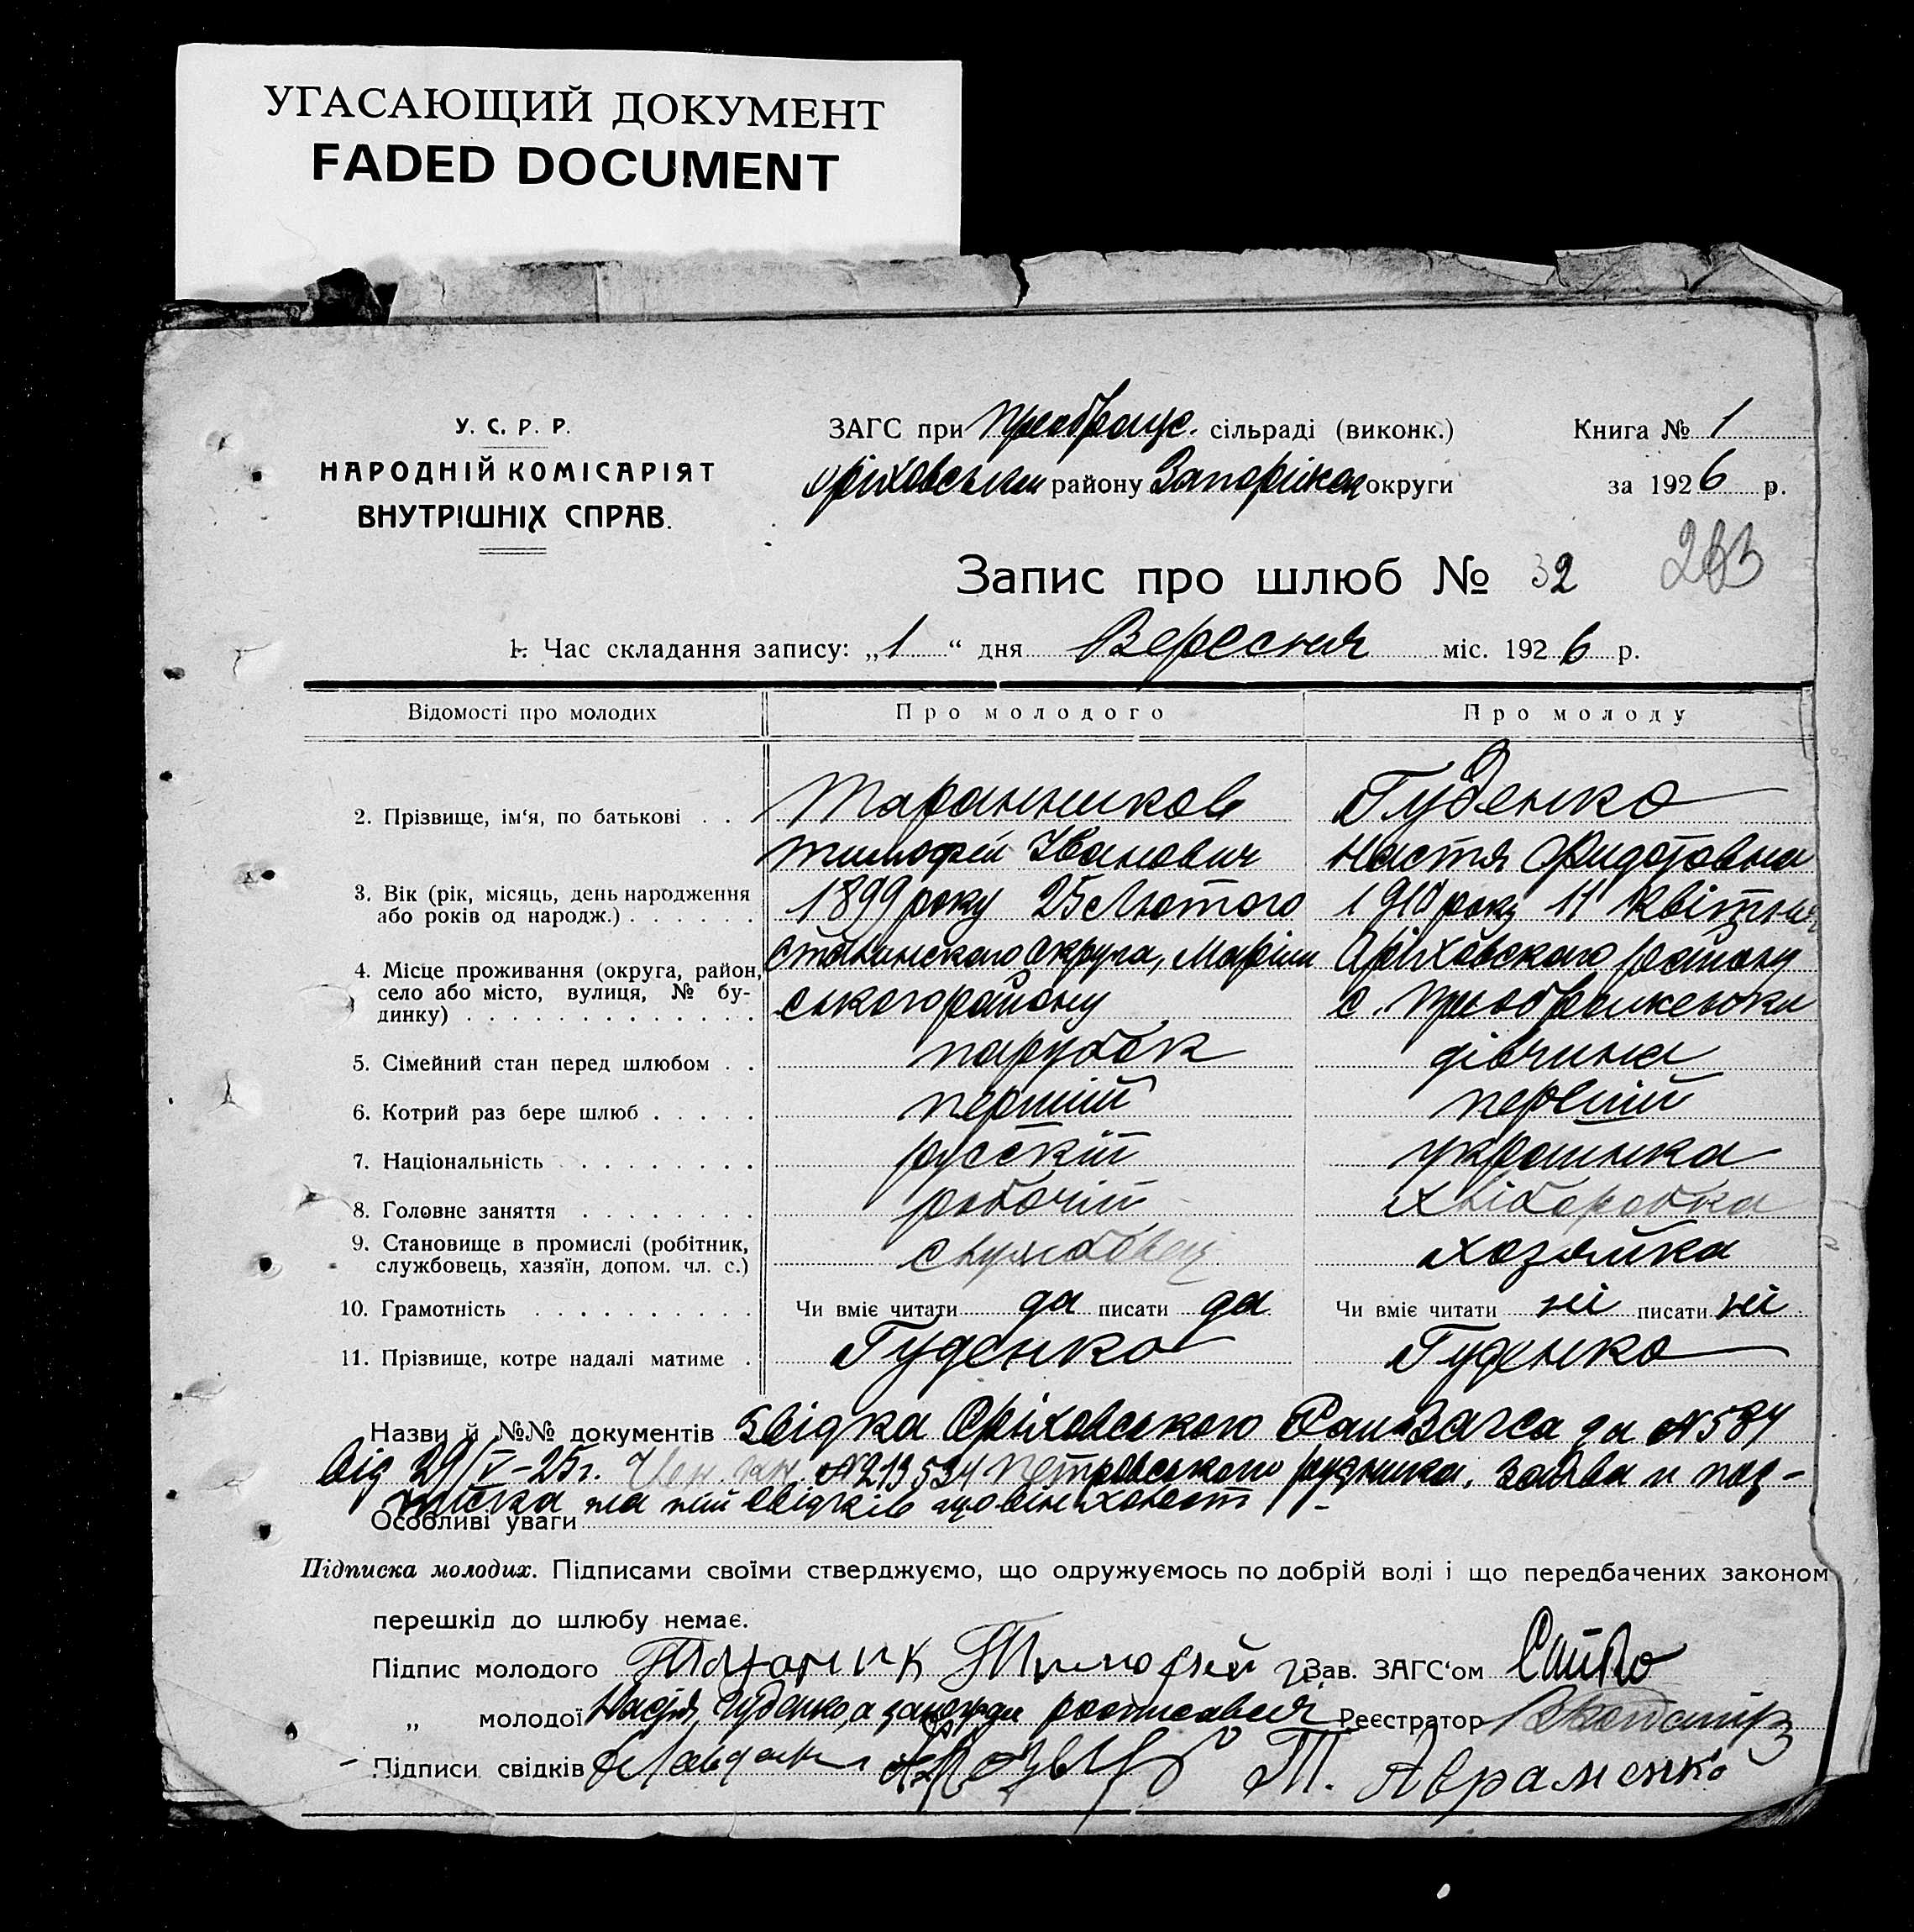 УГАСАЮЩИЙ ДОКУМЕНТ
FADED DOCUMENT
У. С. Р. Р.
НАРОДНІЙ КОМІСАРІЯТ
ВНУТРІШНІХ СПРАВ.
ЗАГС при Преображ. сільраді (виконк.)
Оріховським району Запоріжськ округи
Книга № 1
за 1926 р.
Запис про шлюб № 32
1. Час складання запису: „1“ дня Вересня міс. 1926 р.
Відомості про молодих Про молодого Про молоду
2. Прізвище, ім‘я, по батькові . . Таранников Гуденко
Тимофей Іванович Настя Фидотовна
3. Вік (рік, місяць, день народження 1899 року 25 Лютого 1910 року 11 Квітня
або років од народж.) . . . . . .
4. Місце проживання (округа, район, Сталинского округа, Маріин Оріховского району
село або місто, вулиця, № бу- ського району с. Преображенка
динку) . . . . . . . . . . . . .
5. Сімейний стан перед шлюбом . . парубок дівчина
6. Котрий раз бере шлюб . . . . . перший первий
7. Національність . . . . . . . . русскій украинка
8. Головне заняття . . . . . . . . робочій хліборобка
9. Становище в промислі (робітник, службовец хозяйка
службовець, хазяїн, допом. чл. с.)
10. Грамотність . . . . . . . . . . Чи вміє читати да писати да Чи вміє читати ні писати ні
11. Прізвище, котре надалі матиме . Гуденко Гуденко
Назви й №№ документів Звідка Оріховського РайЗагса за №584
від 29/V-25г. №213534 Петровського рудника, заява и под-
писка на ній свідків що він холост
Особливі уваги
Підписка молодих. Підписами своїми стверджуємо, що одружуємось по добрій волі і що передбачених законом
перешкід до шлюбу немає.
Підпис молодого Тимофей Зав. ЗАГС‘ом
„ молодої Гуденко, а росписався Реєстратор
Підписи свідків Т. Авраменко